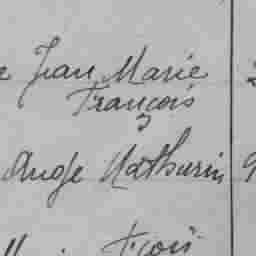 e Jean Marie
François
Ange Mathurin
fçois